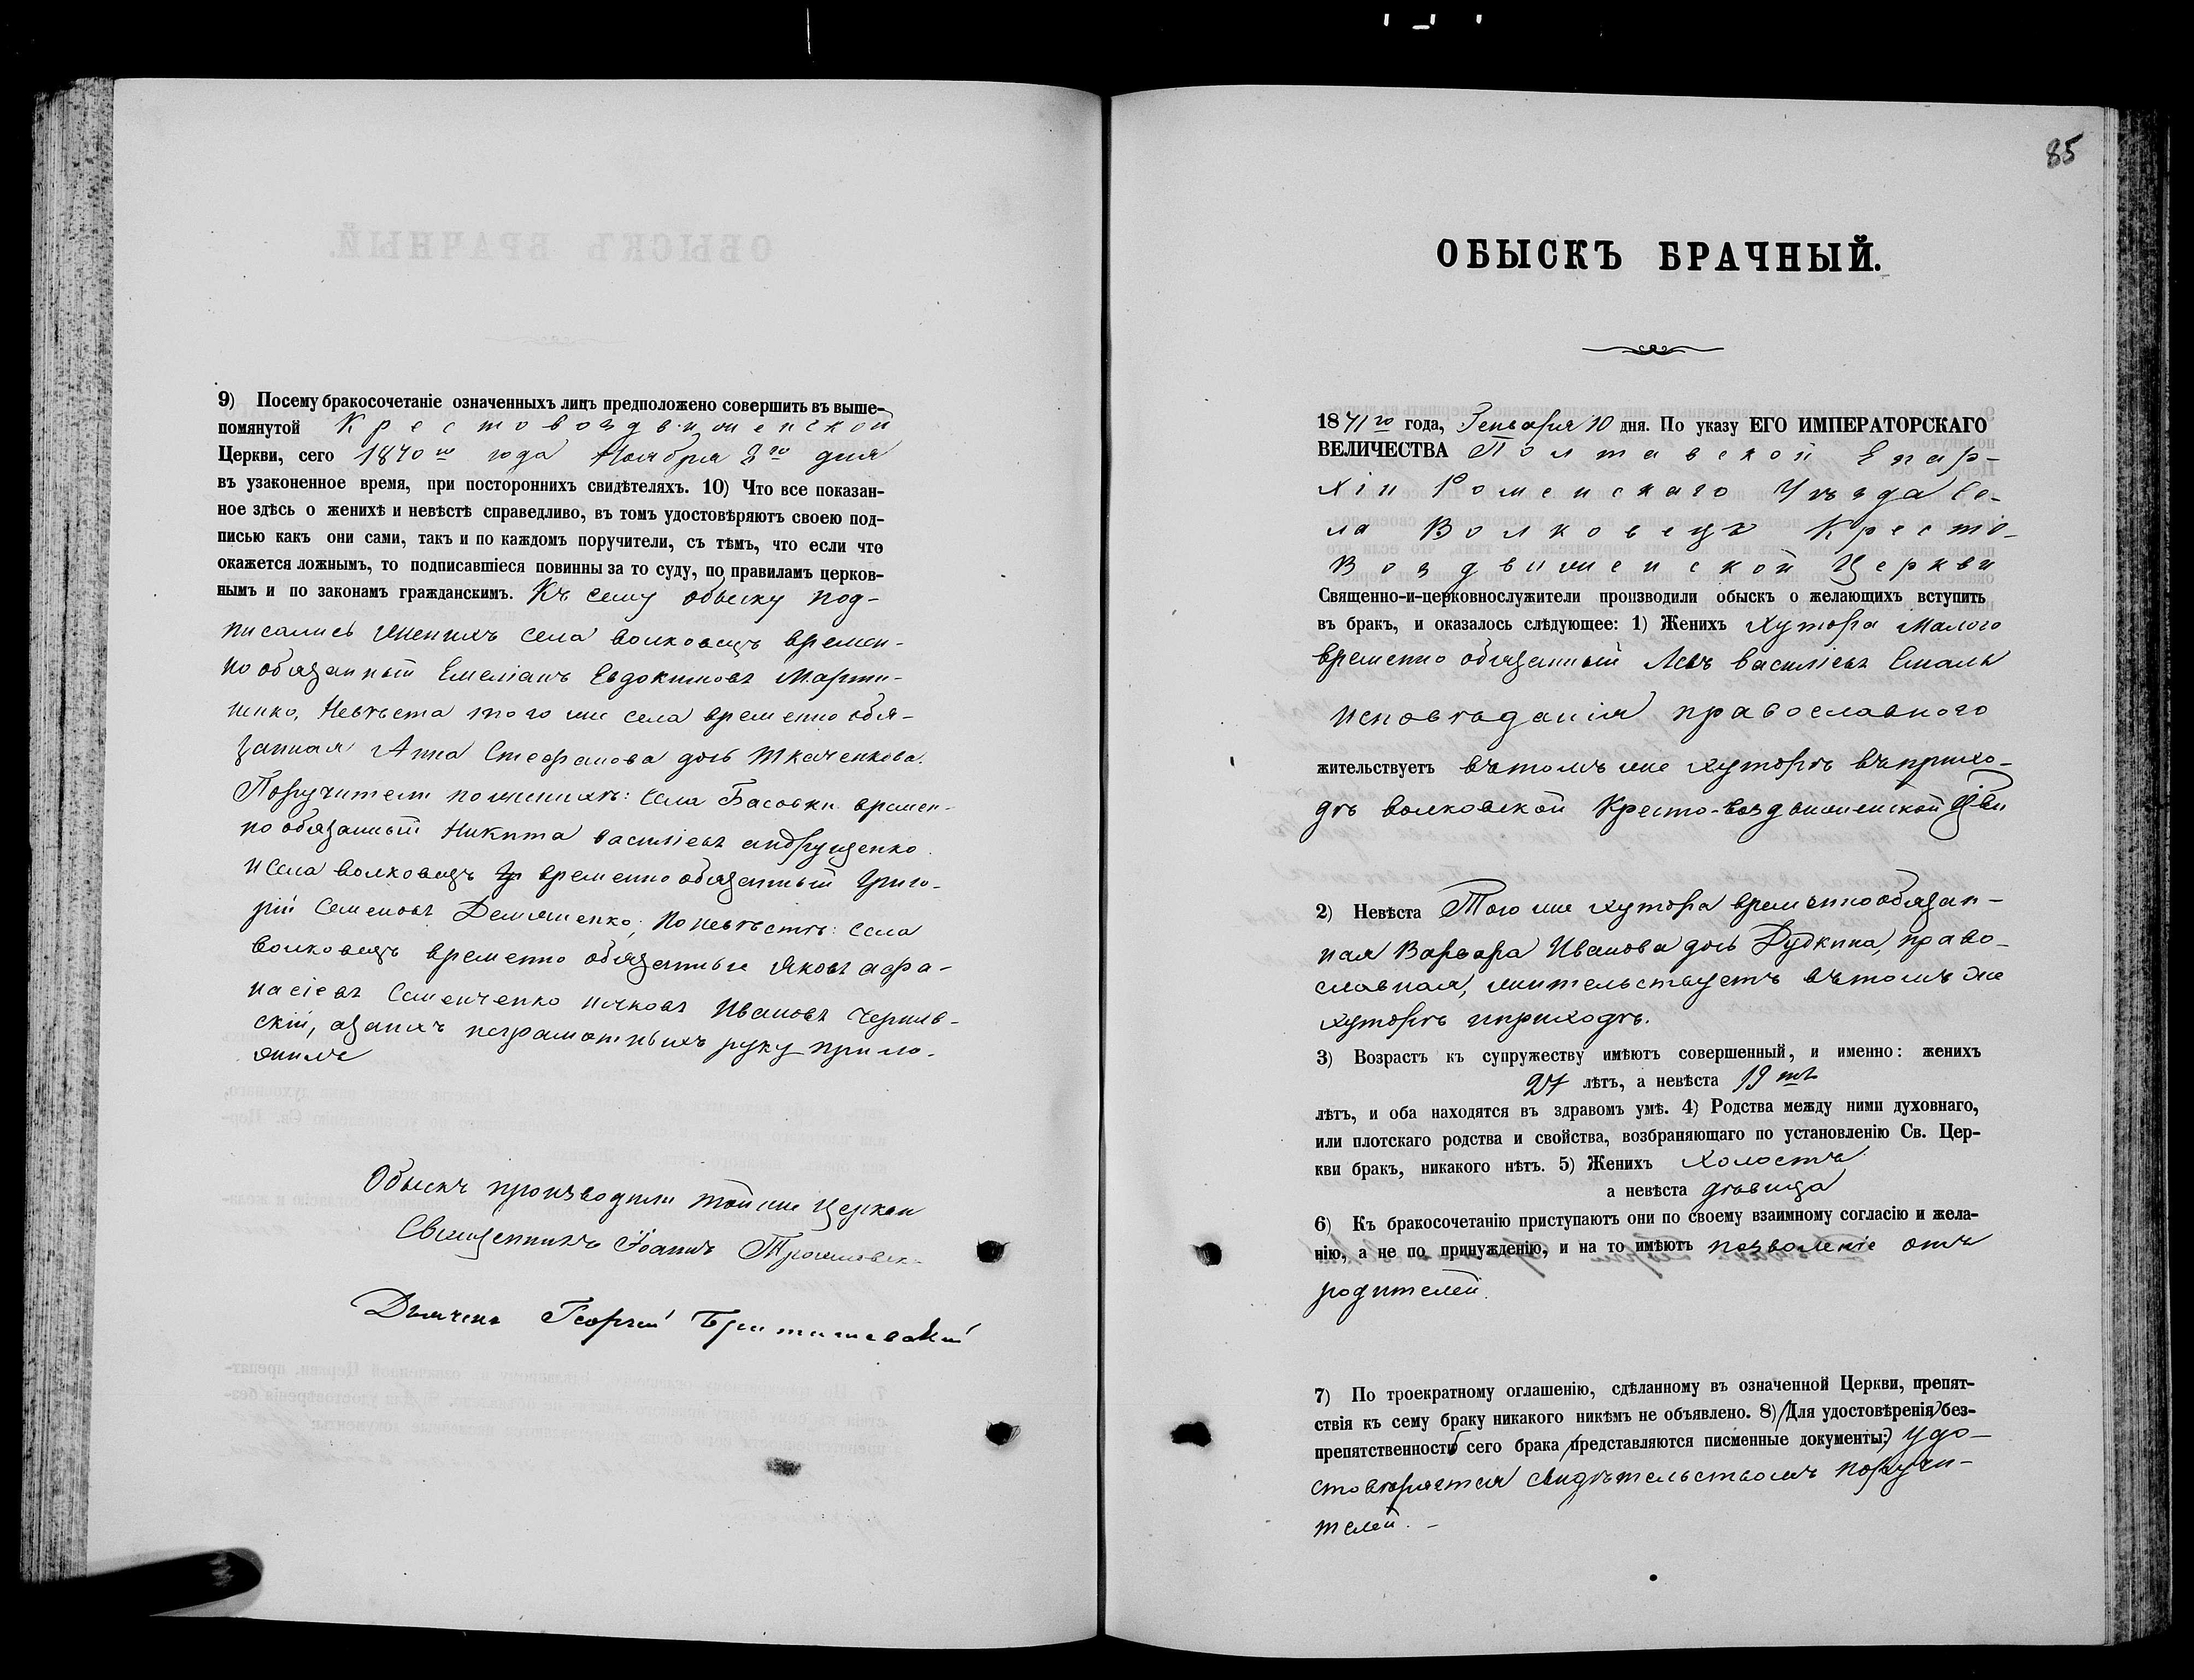 9) Посему бракосочетаніе означенныхъ лицъ предположено совершить въ выше-
помянутой Крестовоздвиженской
Церкви, сего 1870го года Ноября 8го дня
въ узаконенное время, при постороннихъ свидѣтеляхъ. 10) Что все показан-
ное здѣсь о женихѣ и невѣстѣ справедливо, въ томъ удостовѣряютъ своею под-
писью какъ они сами, такъ и по каждомъ поручители, съ тѣмъ, что если что
окажется ложнымъ, то подписавшіеся повинны за то суду, по правиламъ церков-
нымъ и по законамъ гражданскимъ. Къ сему обыску под-
писались женихъ села волковецъ времен-
но обязанный Емеліанъ Евдокимовъ Марти-
ненко, Невѣста того же села временно обя-
занная Анна Стефанова дочь Ткаченкова.
Поручители по женихѣ: села Басовки времен-
но обязанный Никита василіевъ андрущенко
и села волковецъ временно обязанный Григо-
рій Семеновъ Демяшенко, по невѣстѣ: села
волковецъ временно обязанные Яковъ афа-
насіевъ Семенченко Ивановъ Черняв-
скій, а за нихъ неграмотныхъ руку прило-
жилъ
Обыскъ производили той же Церкви
Священникъ Іоаннъ
Дьячекъ Георгій
85
ОБЫСКЪ БРАЧНЫЙ.
1871го года, Генваря 10 дня. По указу ЕГО ИМПЕРАТОРСКАГО
ВЕЛИЧЕСТВА Полтавской Епар-
хіи Роменскаго Уѣзда Се-
ла Волковецъ Кресто-
Воздвиженской Церкви
Священно-и-церковнослужители производили обыскъ о желающихъ вступить
въ бракъ, и оказалось слѣдующее: 1) Женихъ Хутора Малого
временно обязанный Левъ василіевъ
исповѣданія православного
жительствуетъ въ томъ же хуторѣ въ прихо-
дѣ волковской Кресто-воздвиженской Цркви
2) Невѣста Того же хутора временно обязан-
ная Варвара Иванова дочь Дудкина, право-
славная, жительствуетъ въ томъ же
хуторѣ и приходѣ.
3) Возрастъ къ супружеству имѣютъ совершенный, и именно: женихъ
27 лѣтъ, а невѣста 19ть
лѣтъ, и оба находятся въ здравомъ умѣ. 4) Родства между ними духовнаго,
или плотскаго родства и свойства, возбраняющаго по установленію Св. Цер-
кви бракъ, никакого нѣтъ. 5) Женихъ холостъ
а невѣста дѣвица
6) Къ бракосочетанію приступаютъ они по своему взаимному согласію и жела-
нію, а не по принужденію, и на то имѣютъ позволеніе отъ
родителей.
7) По троекратному оглашенію, сдѣланному въ означенной Церкви, препят-
ствія къ сему браку никакого никѣмъ не объявлено. 8) (Для удостовѣренія) без-
препятственность сего брака (представляются писменные документы:) удо-
стовѣряется свидѣтельствомъ поручи-
телей. -